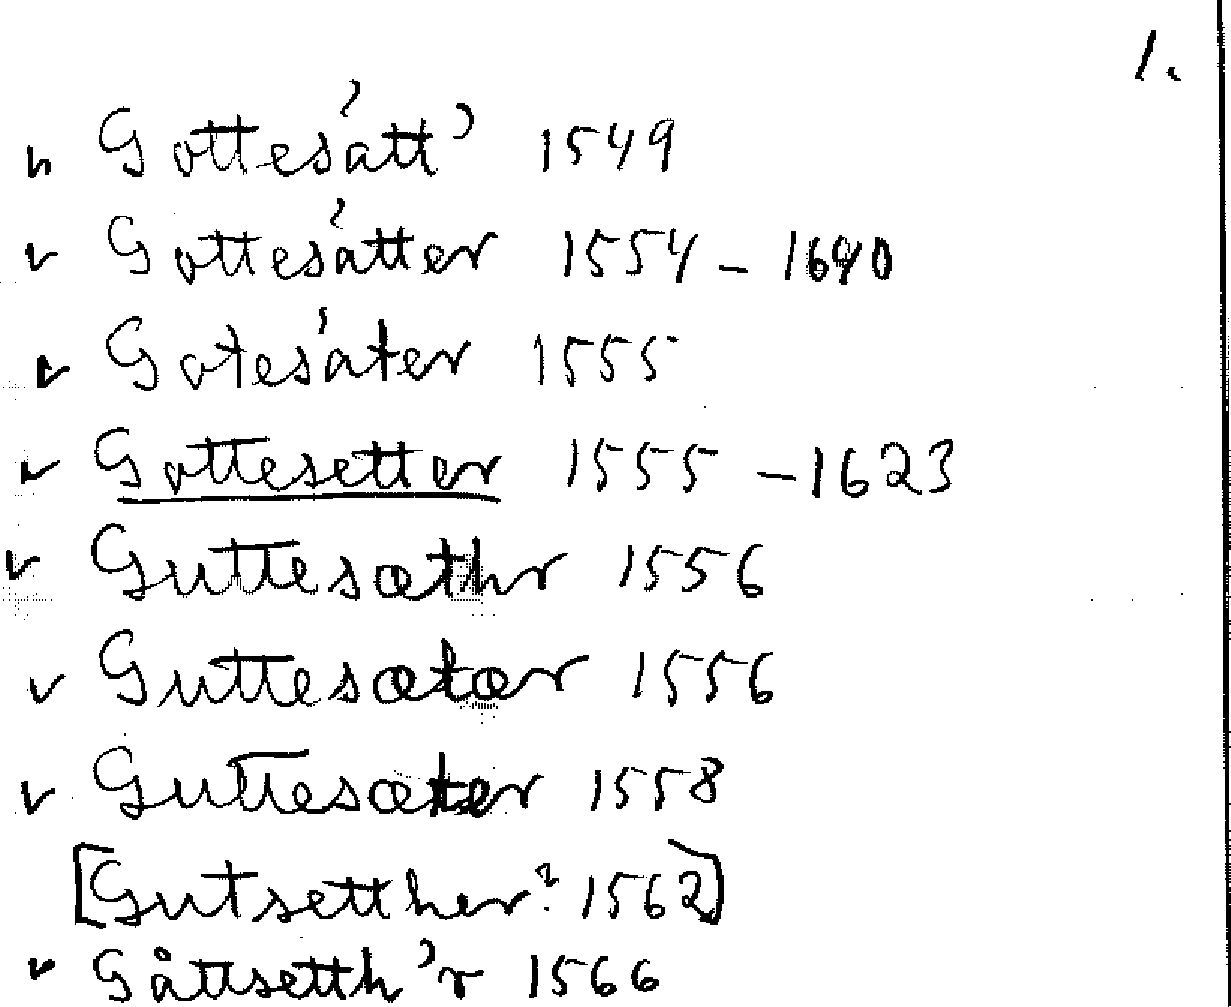 1.
v Gottesátt' 1549
v Gottesátter 1554 - 1640
v Gotesáter 1555
v Gottesetter 1555 - 1623
v Guttesæthr 1556
v Guttesætær 1556
v Guttesæter 1558
[Gutsetther? 1562]
v Gåttsetth'r 1566